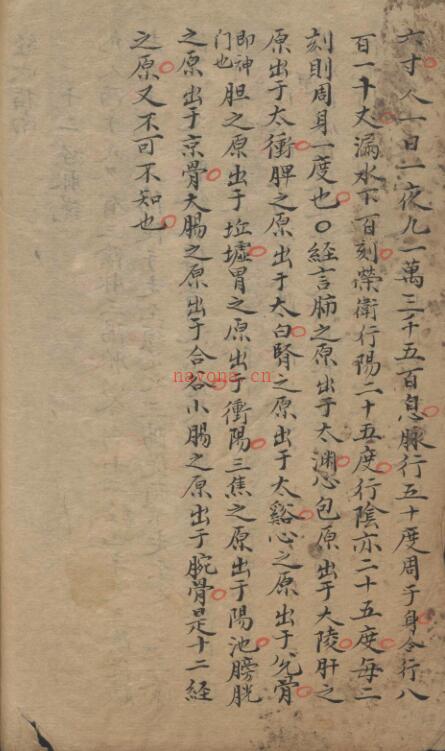 六寸人一日一夜凢一萬三千五百息脉行五十度周于身合行八
百一十丈漏水下百刻榮衛行陽二十五度行陰亦二十五度每二
刻則周身一度也〇經言肺之原出于太渊心包原出于大陵肝之
原出于太衝脾之原出于太白腎之原出于太谿心之原出于兊骨
即神門也胆之原出于坵墟胃之原出于衝陽三焦之原出于陽池膀胱
之原出于京骨大腸之原出于合谷小腸之原出于腕骨是十二經
之原又不可不知也
nayona.cn